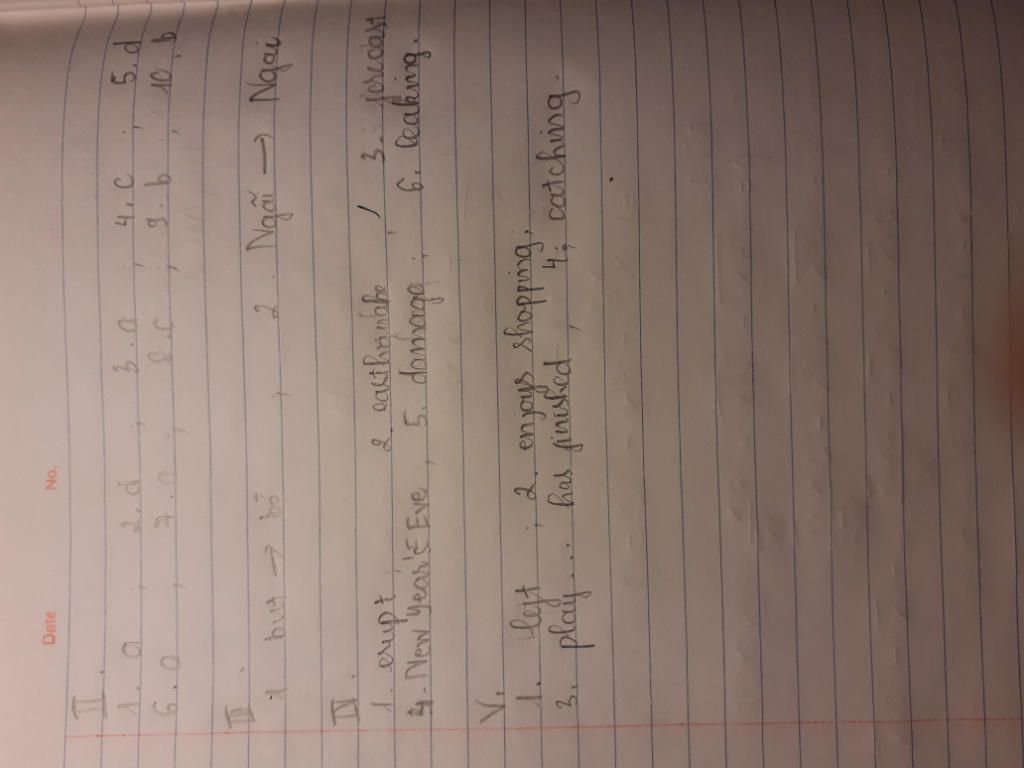 Date No.
II.
1. a , 2. d , 3. a , 4. c , 5. d
6. a , 7. a , 8. c , 9. b , 10. b
III.
1. but → bỏ , 2. Ngãi → Ngãi
IV.
1. erupt , 2. earthquake , 3. forecast
4. New Year's Eve , 5. damage , 6. leaking.
V.
1. left , 2. enjoys shopping,
3. play... has finished , 4, catching.